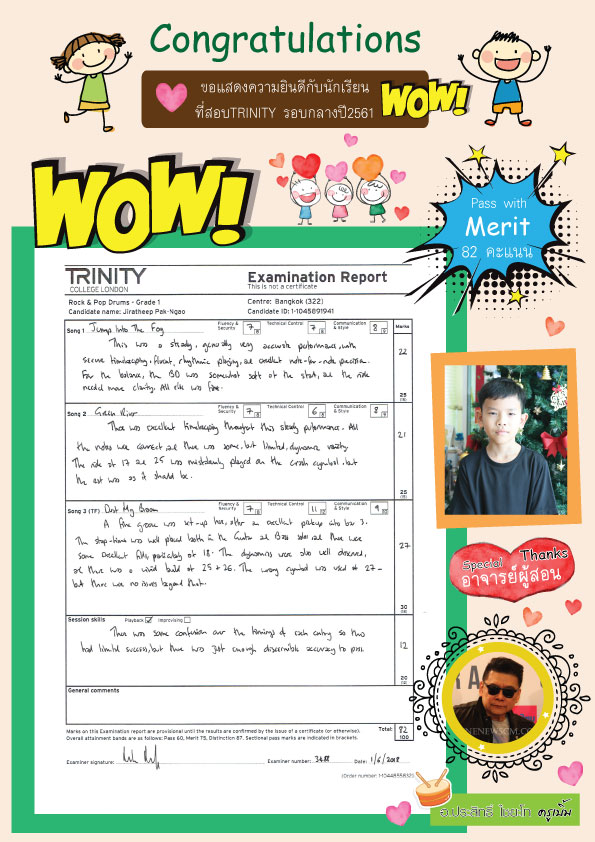 Congratulations
ขอแสดงความยินดีกับนักเรียน
ที่สอบTRINITY รอบกลางปี2561
WOW!
WOW!
Pass with
Merit
82 คะแนน
TRINITY
COLLEGE LONDON
Examination Report
This is not a certificate
Rock & Pop Drums - Grade 1
Centre: Bangkok (322)
Candidate name: Jiratheep Pak-Ngao
Candidate ID: 1-1045891941
Song 1 Jump Into The Fog Fluency & Security 7 /8 Technical Control 7 /8 Communication & Style 8 /9 Marks
This was a steady, generally very accurate performance, with 22
secure timekeeping, fluent, rhythmic playing, and excellent note-for-note precision.
For the balance, the BD was somewhat soft at the start, and the ride
needed more clarity. All else was fine.
25
Song 2 Green River Fluency & Security 7 /8 Technical Control 6 /8 Communication & Style 8 /9
There was excellent timekeeping throughout this steady performance. All 21
the notes were correct, and there was some, but limited, dynamic variety.
The ride at 17 and 25 was mistakenly played on the crash cymbal, but
the rest was as it should be.
25
Song 3 (TF) Dust My Broom Fluency & Security 7 /8 Technical Control 11 Communication & Style 9
A fine groove was set-up here, after an excellent pickup into bar 3.
The stop-time was well placed both in the Guitar and Bass solos and there were
some excellent fills, particularly at 18. The dynamics were also well observed, 27
and there was a vivid build at 25 + 26. The wrong cymbal was used at 27 -
but there were no issues beyond that.
30
Session skills Playback Improvising
There was some confusion over the timings of each entry so this 12
had limited success, but there was just enough discernible accuracy to pass.
20
General comments
Marks on this Examination report are provisional until the results are confirmed by the issue of a certificate (or otherwise).
Overall attainment bands are as follows: Pass 60, Merit 75, Distinction 87. Sectional pass marks are indicated in brackets.
Total: 82
100
Examiner signature:
Examiner number: 3488
Date: 1/6/2018
(Order number: 1-1044855832)
Special Thanks
อาจารย์ผู้สอน
อ.ประสิทธิ์ ไชยฟัก ครูเบิ้ม